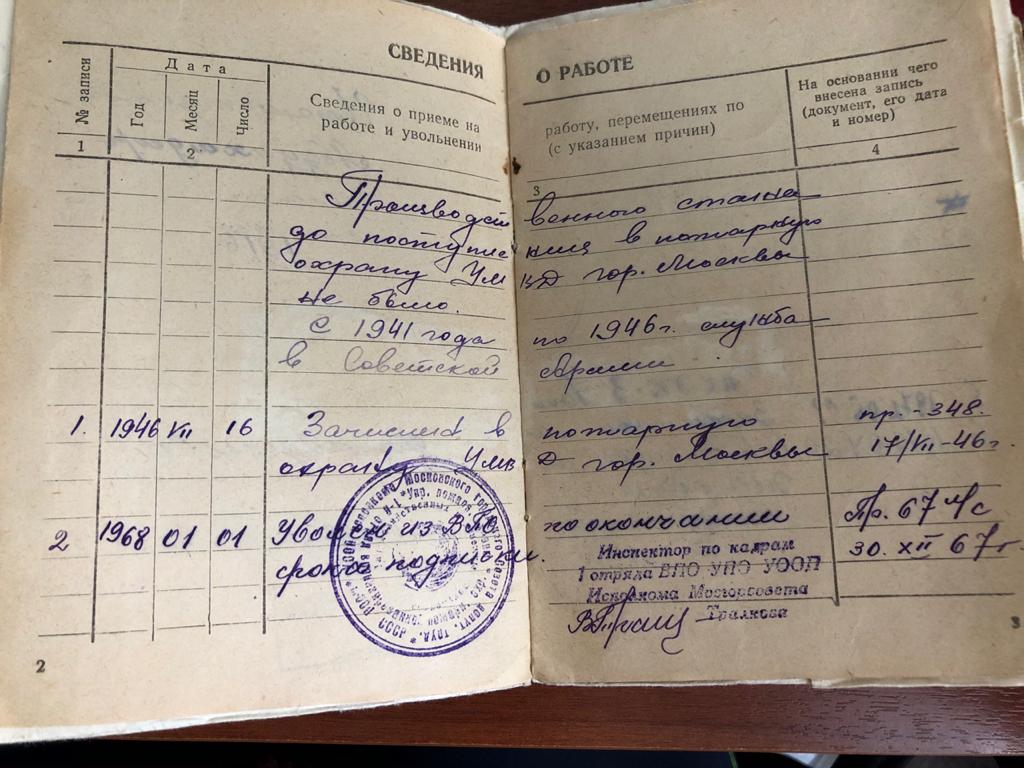 СВЕДЕНИЯ О РАБОТЕ
№ записи
Дата
Год
Месяц
Число
Сведения о приеме на работу, перемещениях по
работе и увольнении (с указанием причин)
На основании чего
внесена запись
(документ, его дата
и номер)
1 2 3 4
Производственного стажа
до поступления в пожарную
охрану УМВД гор. Москвы
не было.
С 1941 года по 1946 г. служба
в Советской Армии
1. 1946 VII 16 Зачислен в пожарную пр. - 348.
охрану УМВД гор. Москвы 17/VII - 46 г.
2 1968 01 01 Уволен из ВПО по окончании Пр. 67 Ч/С
срока подписки. 30. XII 67 г.
Инспектор по кадрам
1 отряда ВПО УПО УООП
Исполкома Мосгорсовета
Тралкова
2
3